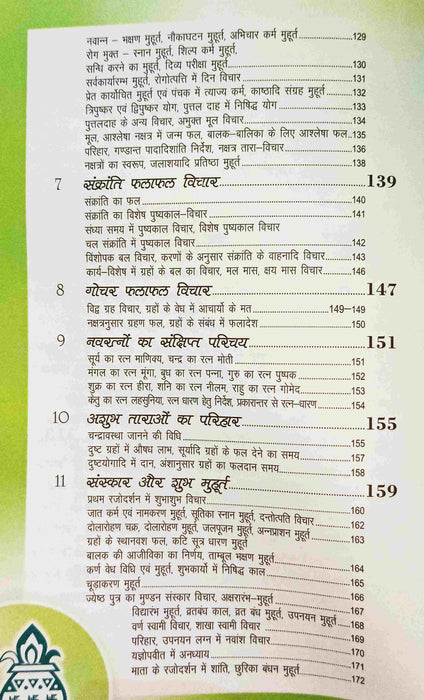 नवान्न - भक्षण मुहूर्त, नौकाघटन मुहूर्त, अभिचार कर्म मुहूर्त 129
रोग मुक्त - स्नान मुहूर्त, शिल्प कर्म मुहूर्त,
सन्धि करने का मुहूर्त, दिव्य परीक्षा मुहूर्त 130
सर्वकार्यारम्भ मुहूर्त, रोगोत्पत्ति में दिन विचार 131
प्रेत कार्योचित मुहूर्त एवं पंचक में त्याज्य कर्म, काष्ठादि संग्रह मुहूर्त 132
त्रिपुष्कर एवं द्विपुष्कर योग, पुत्तल दाह में निषिद्ध योग 133
पुत्तलदाह के अन्य विचार, अभुक्त मूल विचार 134
मूल, आश्लेषा नक्षत्र में जन्म फल, बालक-बालिका के लिए आश्लेषा फल 135
परिहार, गण्डान्त पादादिशांति निर्देश, नक्षत्र तारा-विचार 136
नक्षत्रों का स्वरूप, जलाशयादि प्रतिष्ठा मुहूर्त 138
7 संक्रांति फलाफल विचार 139
संक्रांति का फल 140
संक्रांति का विशेष पुष्यकाल-विचार 141
संध्या समय में पुष्यकाल विचार, विशेष पुष्यकाल विचार
चल संक्रांति में पुष्यकाल विचार 142
विंशोपक बल विचार, करणों के अनुसार संक्रांति के वाहनादि विचार 143
कार्य-विशेष में ग्रहों के बल का विचार, मल मास, क्षय मास विचार 146
8 गोचर फलाफल विचार 147
विद्व ग्रह विचार, ग्रहों के वेध में आचार्यो के मत 149-149
नक्षत्रनुसार ग्रहण फल, ग्रहों के संबंध में फलादेश 150
9 नवरत्नों का संक्षिप्त परिचय 151
सूर्य का रत्न माणिक्य, चन्द्र का रत्न मोती 151
मंगल का रत्न मूंगा, बुध का रत्न पन्ना, गुरु का रत्न पुष्पक 152
शुक्र का रत्न हीरा, शनि का रत्न नीलम, राहु का रत्न गोमेद 153
केतु का रत्न लहसुनिया, रत्न धारण हेतु निर्देश, प्रकारान्तर से रत्न-धारण 154
10 अशुभ ताराओं का परिहार 155
चन्द्रावस्था जानने की विधि 155
दुष्ट ग्रहों में औषध लाभ, सूर्यादि ग्रहों के फल देने का समय 157
दुष्टयोगादि में दान, अंशानुसार ग्रहों का फलदान समय 158
11 संस्कार और शुभ मुहूर्त 159
प्रथम रजोदर्शन में शुभाशुभ विचार 160
जात कर्म एवं नामकरण मुहूर्त, सूतिका स्नान मुहूर्त, दन्तोत्पति विचार 162
दोलारोहण चक्र, दोलारोहण मुहूर्त, जलपूजन मुहूर्त, अन्नप्राशन मुहूर्त 163
ग्रहों के स्थानवश फल, कटि सूत्र धारण मुहूर्त
बालक की आजीविका का निर्णय, ताम्बूल भक्षण मुहूर्त 164
कर्ण वेध विधि एवं मुहूर्त, शुभकार्यो में निषिद्ध काल 165
चूड़ाकरण मुहूर्त 166
ज्येष्ठ पुत्र का मुण्डन संस्कार विचार, अक्षरारंभ-मुहूर्त 167
विद्यारंभ मुहूर्त, व्रतबंध काल, व्रत बंध मुहूर्त, उपनयन मुहूर्त 168
वर्ण स्वामी विचार, शाखा स्वामी विचार 169
परिहार, उपनयन लग्न में नवांश विचार 170
यज्ञोपवीत में अनध्याय 171
माता के रजोदर्शन में शांति, छुरिका बंधन मुहूर्त 172